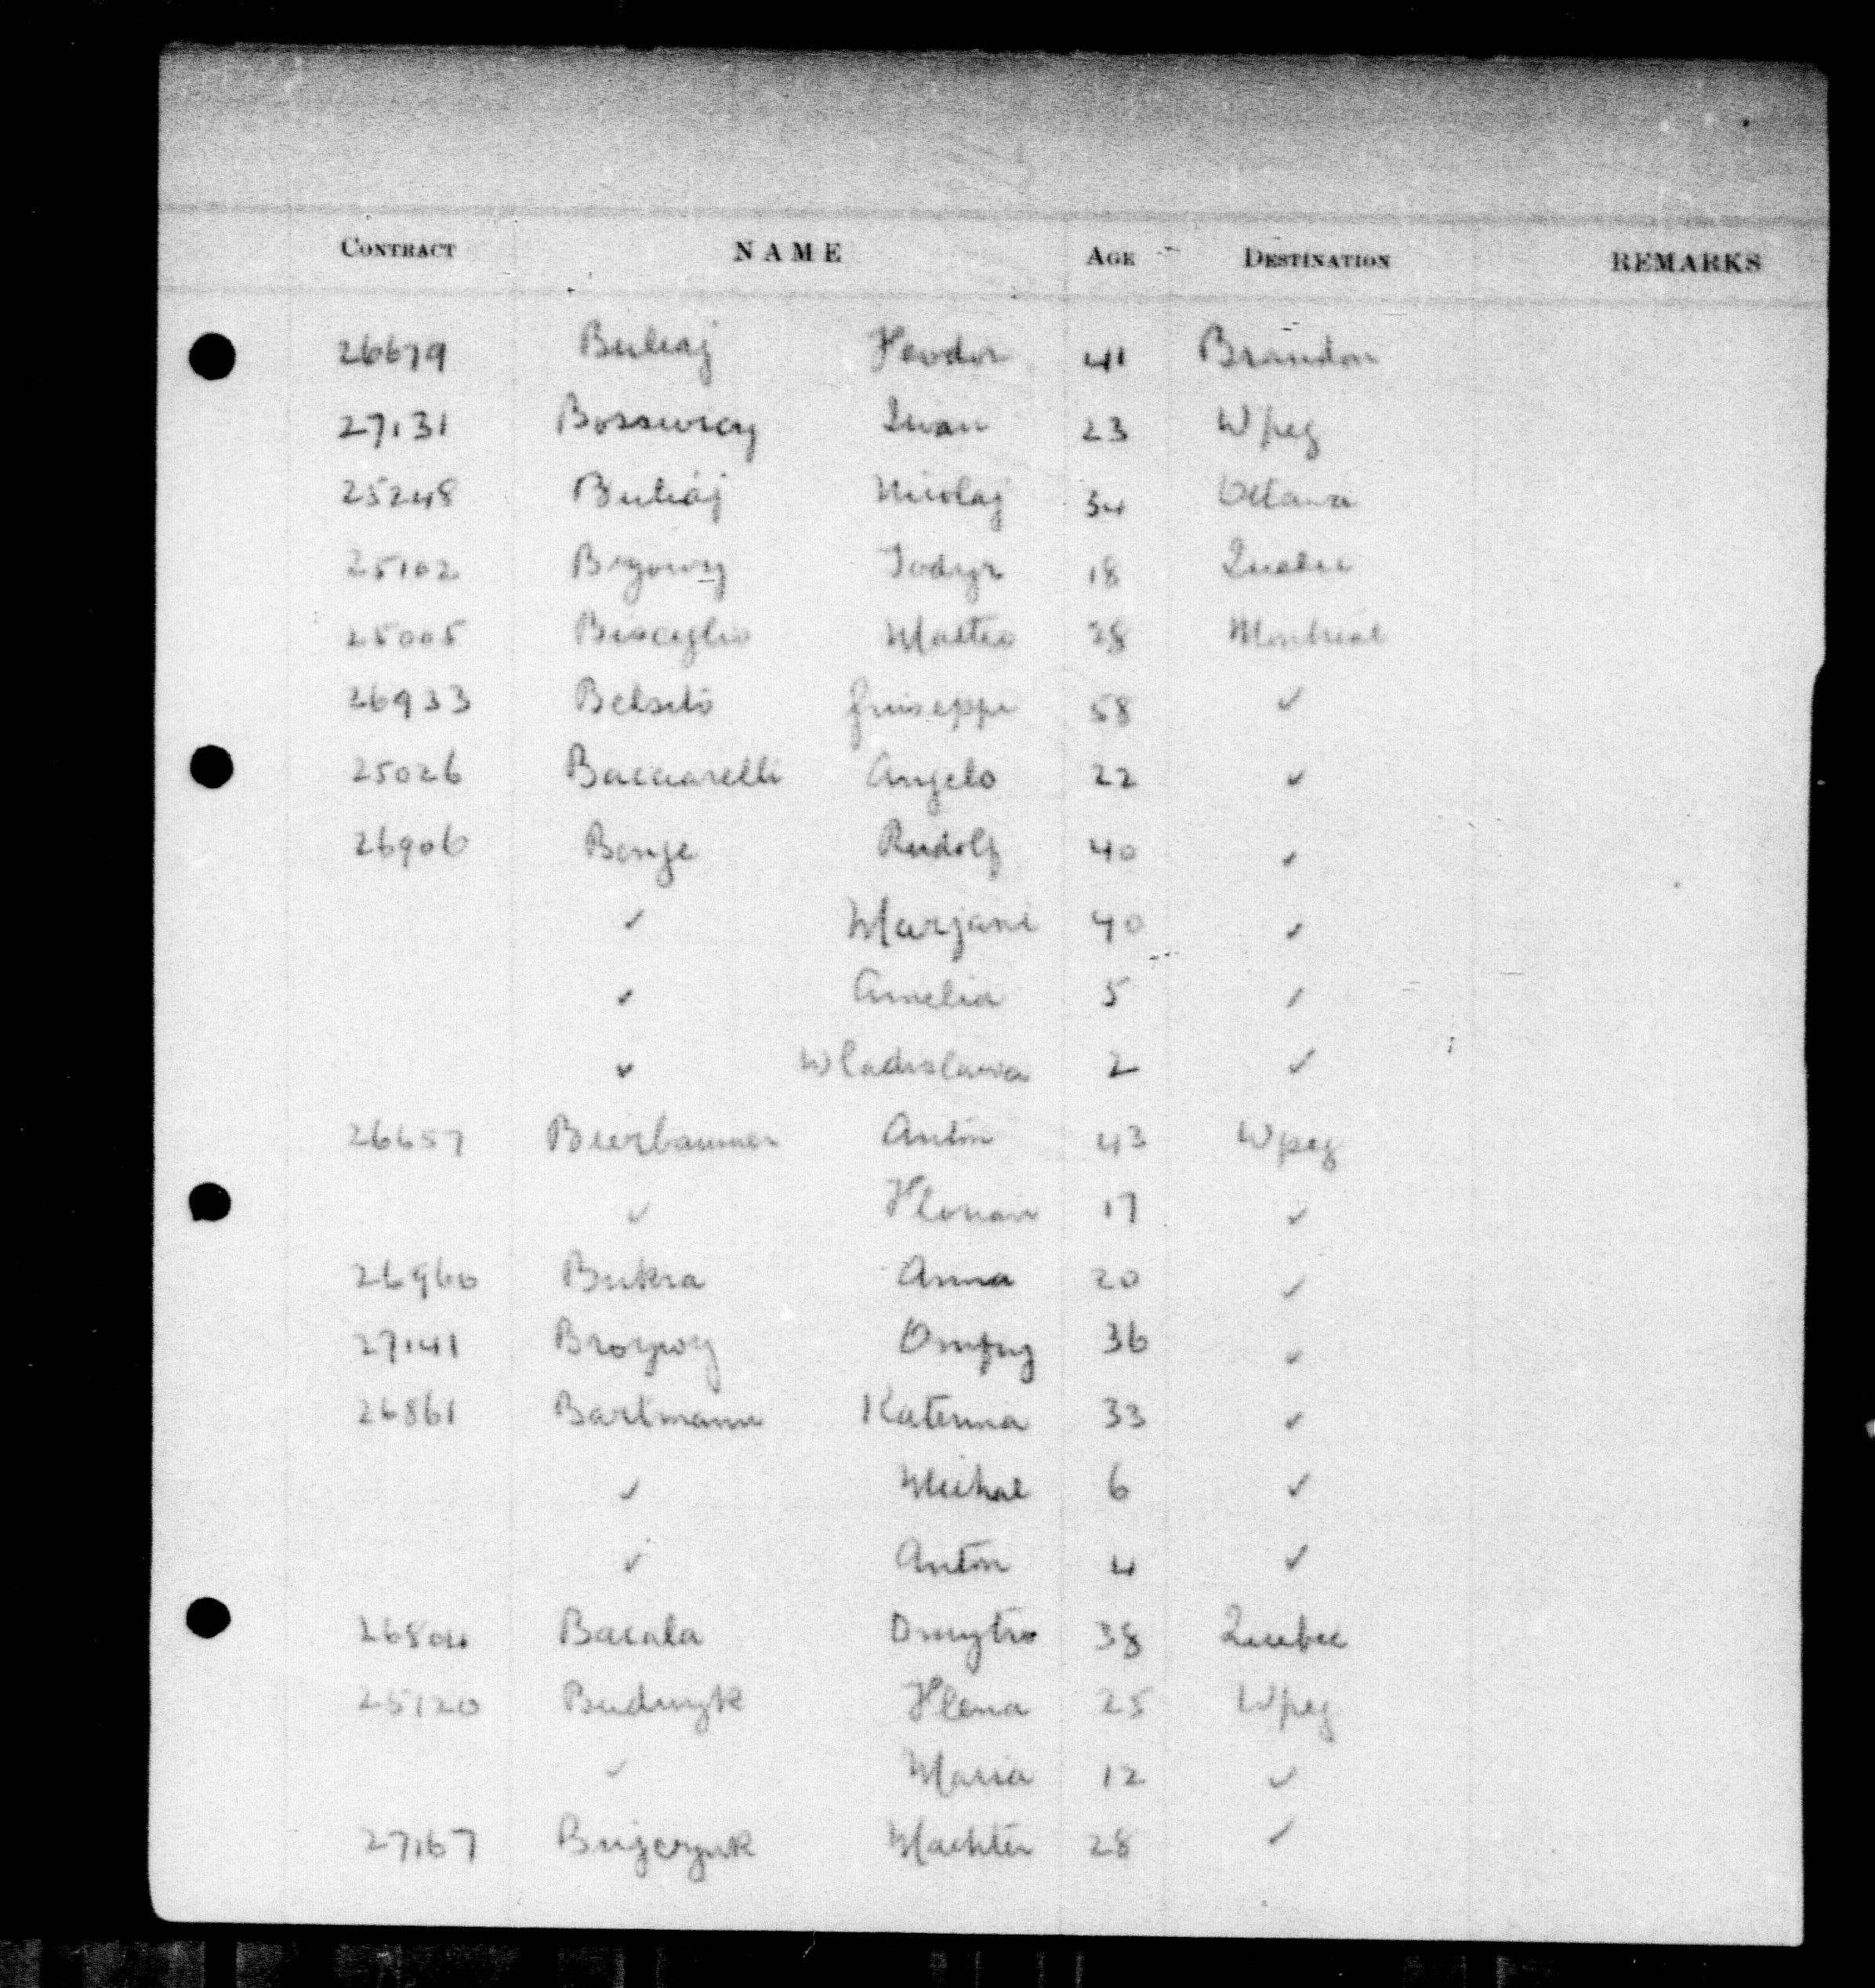 CONTRACT NAME AGE DESTINATION REMARKS
26679 Buliaj Feodor 41 Brandon
27131 Iwan 23 Wpeg
25248 Buliaj Nicolaj 34 Ottawa
25102 Fodyr 18 Quebec
25005 Bisceglio Matteo 28 Montreal
26933 Belsito Giuseppe 58 ✓
25026 Bacciarelli Angelo 22 ✓
26906 Benje Rudolf 40 ✓
✓ Marjane 40 ✓
✓ Amelia 5 ✓
✓ Wladislawa 2 ✓
26657 Bierbaumer Anton 43 Wpeg
✓ Florian 17 ✓
26960 Bukra Anna 20 ✓
27141 36 ✓
26861 Bartmann Katerina 33 ✓
✓ Michal 6 ✓
✓ Anton 4 ✓
26804 Bacala Dmytro 38 Quebec
25120 Budnyk Hlena 25 Wpeg
✓ Maria 12 ✓
27167 28 ✓